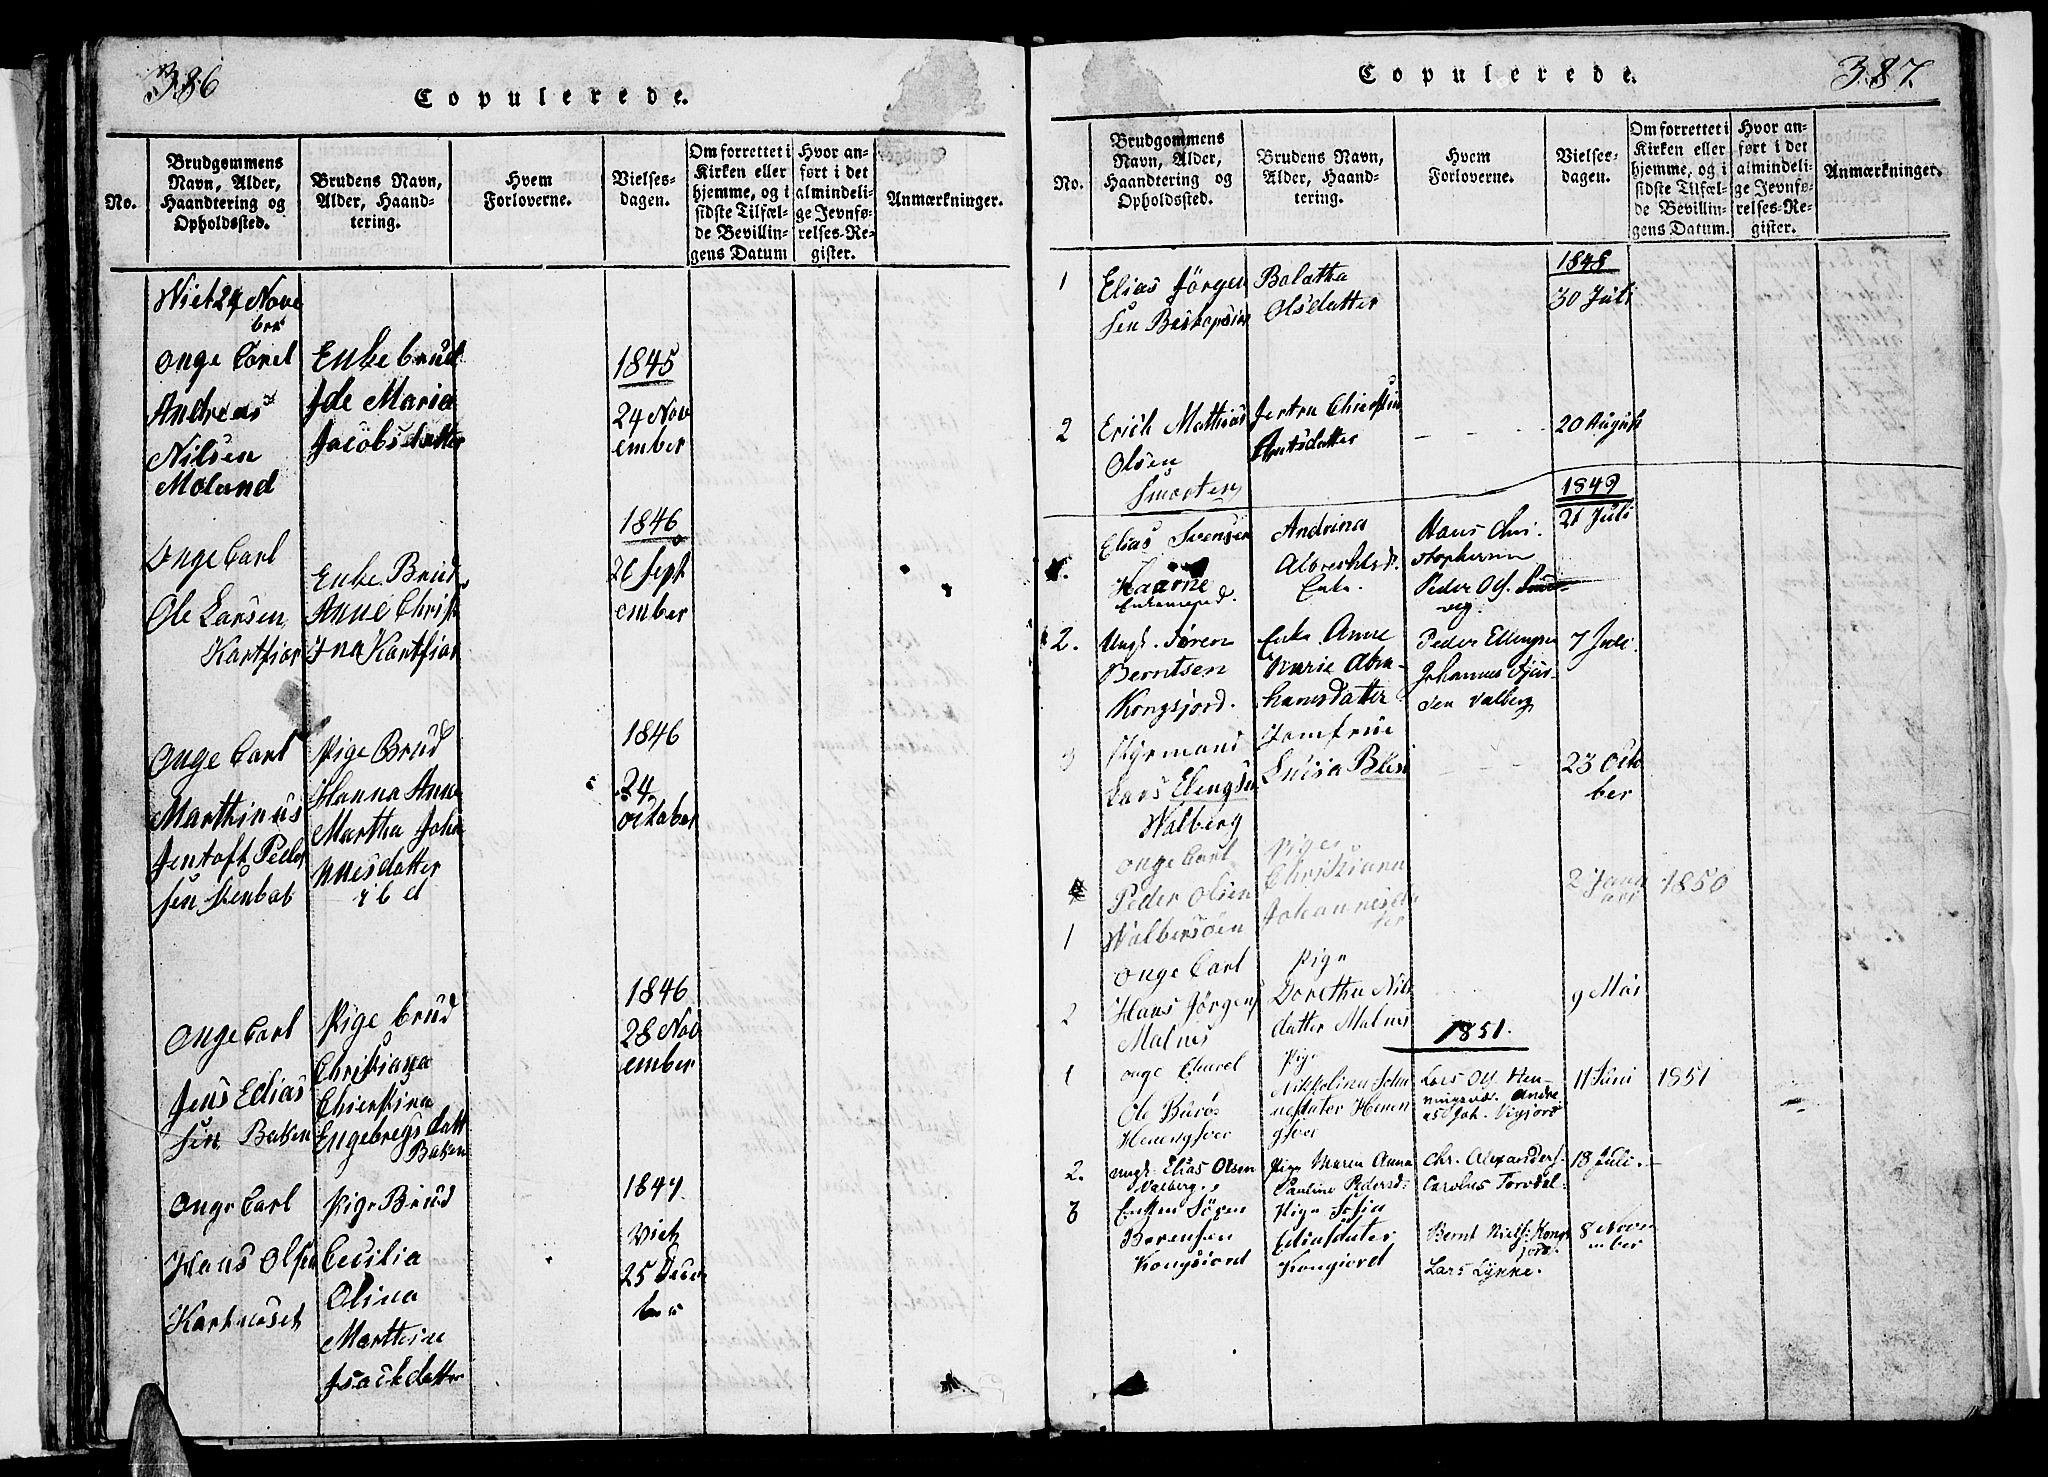 386
Copulerede.
No.
Brudgommens Navn, Alder, Haandtering og Opholdssted.
Brudens Navn, Alder, Haandtering.
Hvem Forloverne.
Vielsesdagen.
Om forrettet i Kirken eller hjemme, og i sidste Tilfælde Bevillingens Datum
Hvor anført i det almindelige Jevnførelses-Register.
Anmærkninger.
Viet 24 Nove
ber
onge Carel
Andreas
Nilsen
Moland
Enke brud
Ide Maria
Jacobsdatter
1845
24 Nov
ember
Onge Carl
Ole Larsen
Kartfior
Enke Brud
Anne Christ
ina Kartfior
1846
26 Sept
ember
Onge Carl
Marthinus
Jentoft Peder
sen Stenbak
Pige Brud
Hanna Anne
Martha Joha
nnesdatter
ibd
1846
24
octaber
Onge Carl
Jens Edias
sen Baken
Pige brud
Christiana
Chierstina
Engebregsdatt
Baken
1846
28 Nov
ember
Onge Carl
Hans Olsen
Karthuset
Pige Brud
Cecilia
Olina
Marthine
Isackdatter
1847
Viet
25 Dece
ber
387.
Copulerede.
No.
Brudgommens Navn, Alder, Haandtering og Opholdssted.
Brudens Navn, Alder, Haandtering.
Hvem Forloverne.
Vielsesdagen.
Om forrettet i Kirken eller hjemme, og i sidste Tilfælde Bevillingens Datum.
Hvor anført i det almindelige Jevnførelses-Register.
Anmærkninger.
1
Elias Jörgen
sen
Bolatha
Olsdatter
1848
30 Juli
2
Erich Mathias
Olsen
Smorten
Jertru Chierstin
Arntsdatter
20 August
1849
Elias Svensen
Haarne
Enkemand.
Andrina
Albrechtsd.
Enke.
Hans Chri
stophersen
Peder Ols.
21 Juli
2.
Ungk. Sören
Berntsen
Kongsjord.
Enke Anne
Marie Abra
hamsdatter
Peder Ellingsen
Johannes
Valberg
7 Juli
3
Styrmand
Lars Elengsen
Walberg
Jomfrue
Luisa Blix
23 Octo
ber
1
onge Carl
Peder Olsen
Walbersöen
Pige
Christiana
Johannesda
ter
2 Janu
ar
1850
2
onge Carl
Hans Jörgens
Malnes
Pige
Dorethea Nils
datter Malnes
9 Mai
1851.
1
onge Charel
Ole Buros
Heningsver
Pige
Nikkolina Joha
nesdater Henin
gsver
Lars Ols. Hen
ningsvæ. Andre
as Joh. Vigjord
11 Juni
1851
2.
Ungk. Elias Olsen
Valberg.
Pige Maren Anna
Pauline Pedersd.
Chr. Alexanders.
Carolus Torvdal
18 Juli.
3
Enkem Sören
Berensen
Kongsiord
Pige Sofia
Eliasdater
Kongiord
Bernt Niels. Kongs
jord.
Lars Lykke.
8 Novem
ber